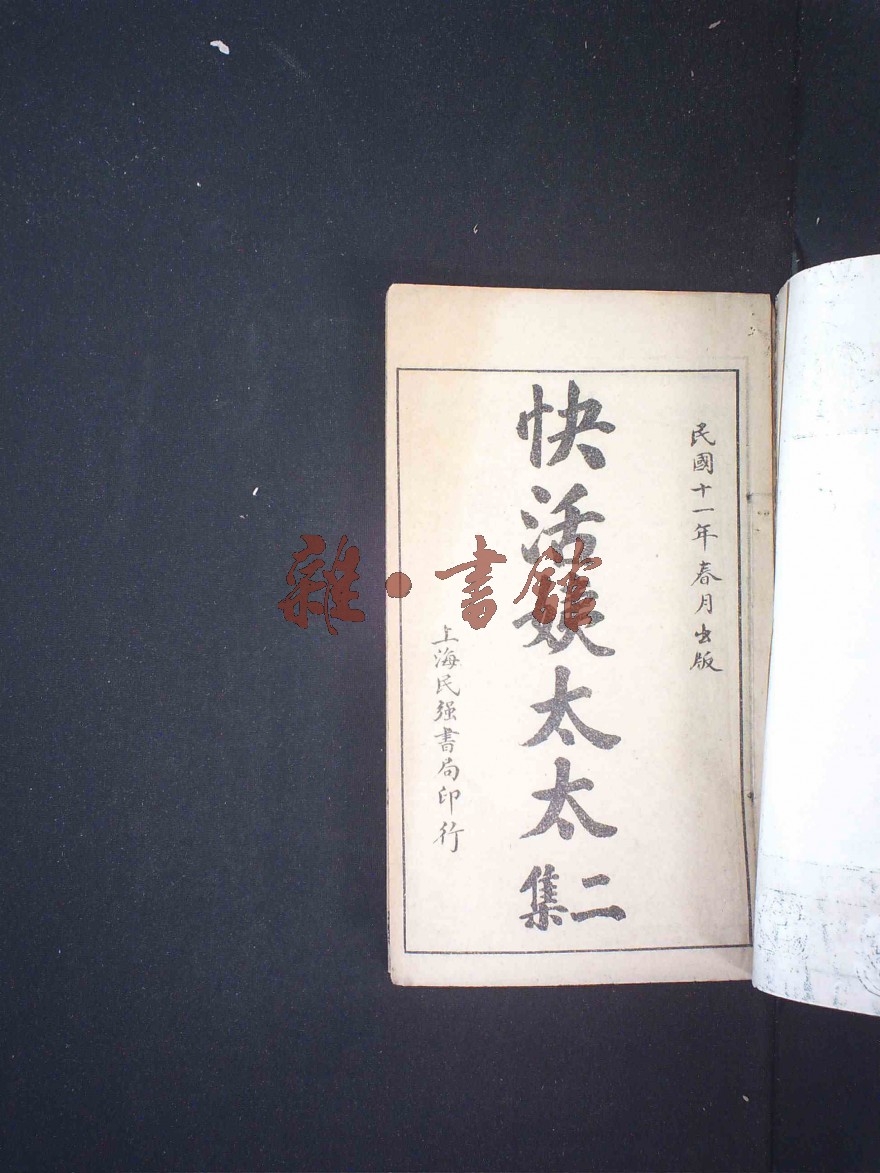 民國十一年春月出版
快活姨太太
二集
上海民强書局印行
雜·書館